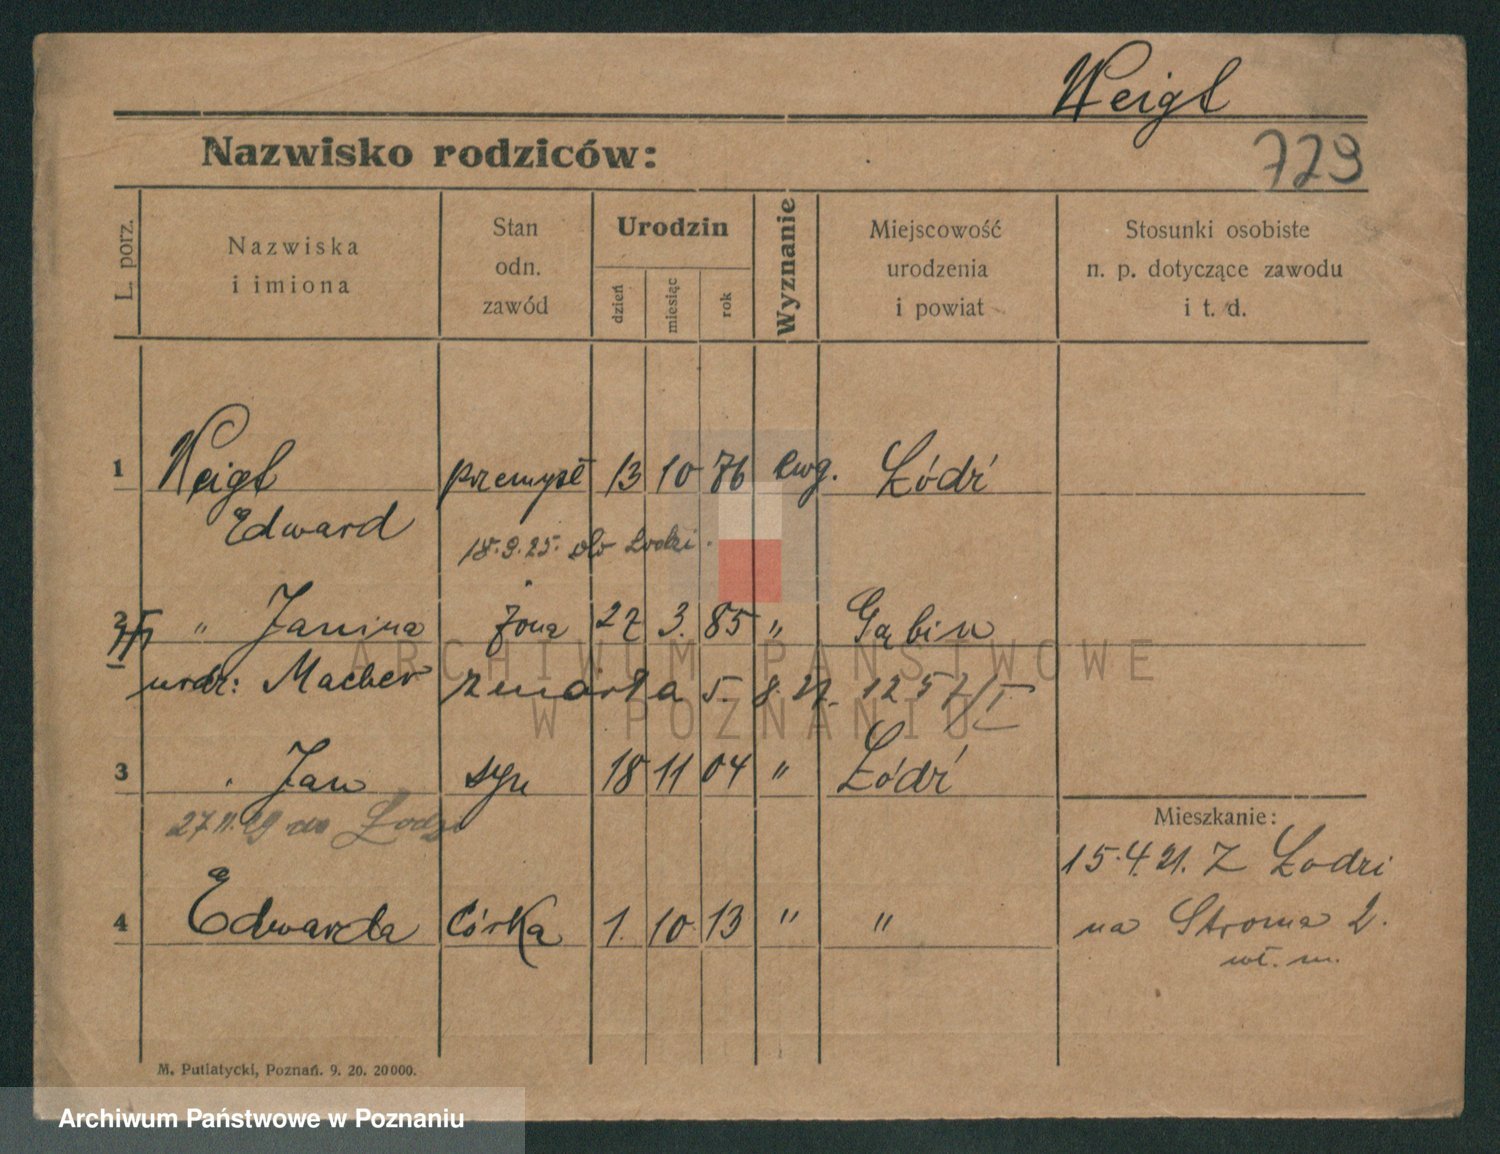 Weigt
Nazwisko rodziców:
729
L. porz.
Nazwiska
i imiona
Stan
odn.
zawód
Urodzin
dzień
miesiąc
rok
Wyznanie
Miejscowość
urodzenia
i powiat
Stosunki osobiste
n. p. dotyczące zawodu
i t. d.
1 Weigt przemysł 13 10 76 ewg. Łódź
Edward
18.9.25. do Łodzi.
2 " Janina żona 27 3. 85 " Gąbin
urodz: Macher zmarła 5. 8. 27. 1257/I
3 " Jan syn 18 11 04 " Łódź
27 11. 29 do Łodzi
4 Edwarda córka 1. 10. 13 " "
Mieszkanie:
15.4.21. z Łodzi
na Stroma 2.
wł. m.
M. Putiatycki, Poznań. 9. 20. 20000.
ARCHIWUM PAŃSTWOWE
W POZNANIU
Archiwum Państwowe w Poznaniu